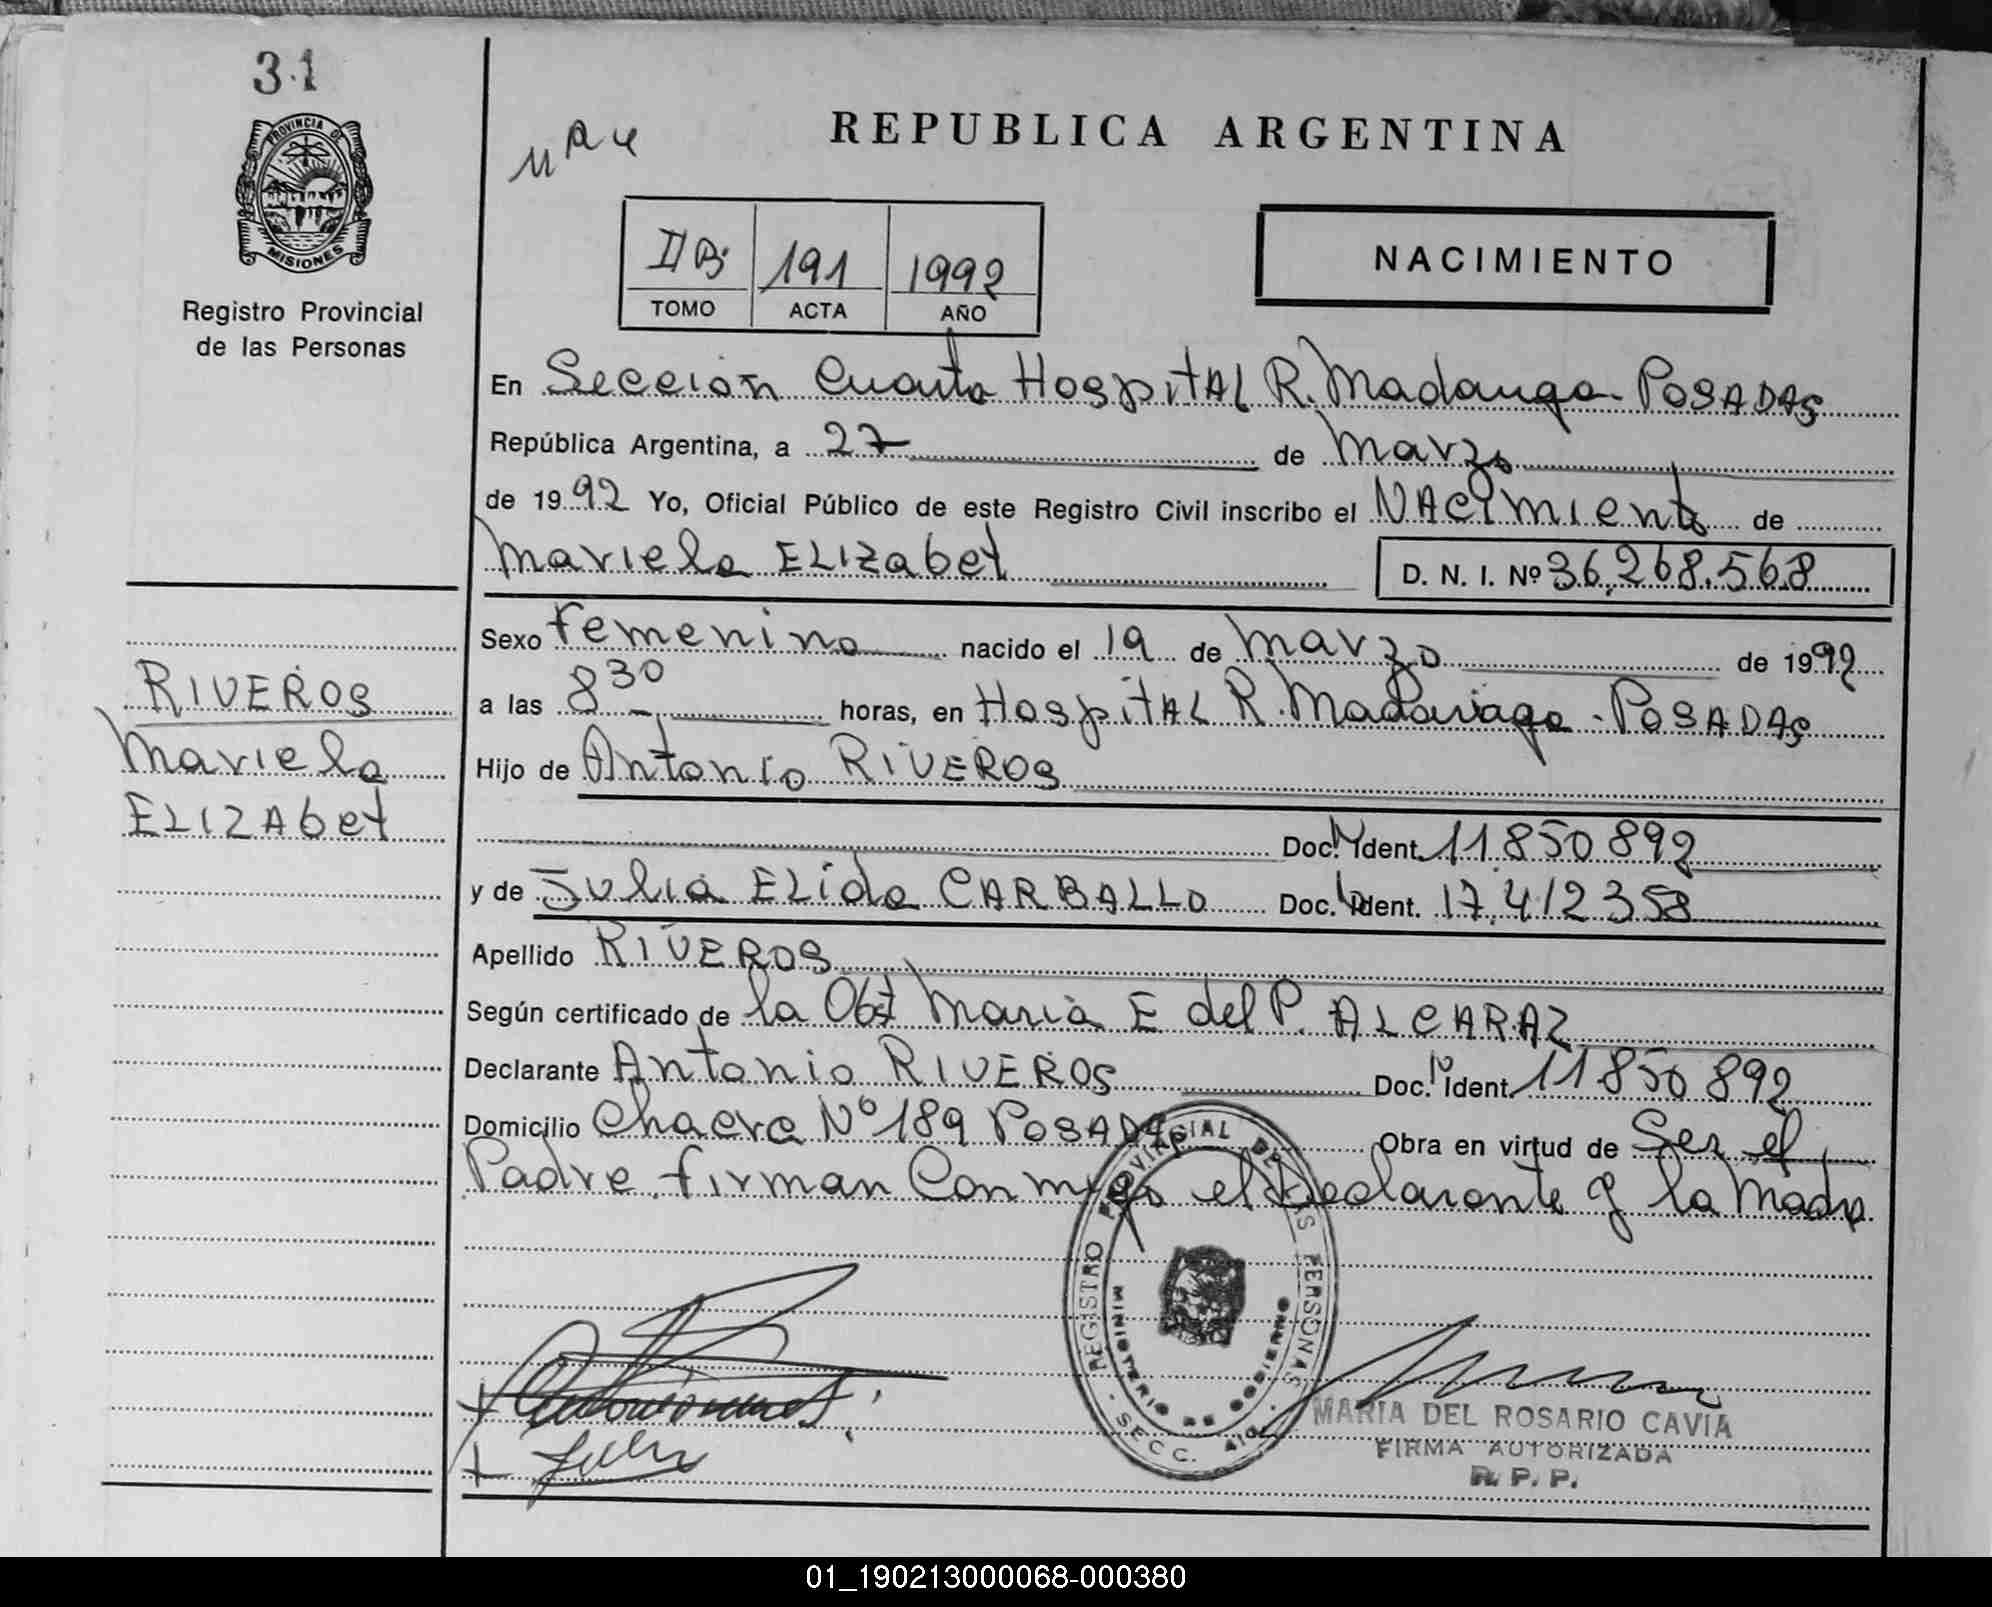 31
PROVINCIA DE
MISIONES
Registro Provincial
de las Personas
REPUBLICA ARGENTINA
II Bis 191 1992
TOMO ACTA AÑO
NACIMIENTO
En Sección Cuarta Hospital R. Madariaga - POSADAS
República Argentina, a 27 de Marzo
de 1992 Yo, Oficial Público de este Registro Civil inscribo el NAcimiento de
Mariela ELIZabet D. N. I. Nº 36.268.568
Sexo femenino nacido el 19 de Marzo de 1992
a las 8 30 horas, en Hospital R. Madariaga - POSADAS
Hijo de Antonio RIVEROS
Doc. Ident. 11.850.892
y de Julia ELida CARBALLO Doc. Ident. 17.412.358
Apellido RIVEROS
Según certificado de la Obst Maria E del P. ALCARAZ
Declarante Antonio RIVEROS Doc. Ident. 11.850.892
Domicilio Chacra Nº 189 POSADAS Obra en virtud de Ser el
Padre. firman Conmigo el declarante y la Madre
RIVEROS
Mariela
ELIZAbet
REGISTRO PROVINCIAL DE LAS PERSONAS
MINISTERIO DE GOBIERNO
SECC. 4ta
MARIA DEL ROSARIO CAVIA
FIRMA AUTORIZADA
R. P. P.
01_190213000068-000380